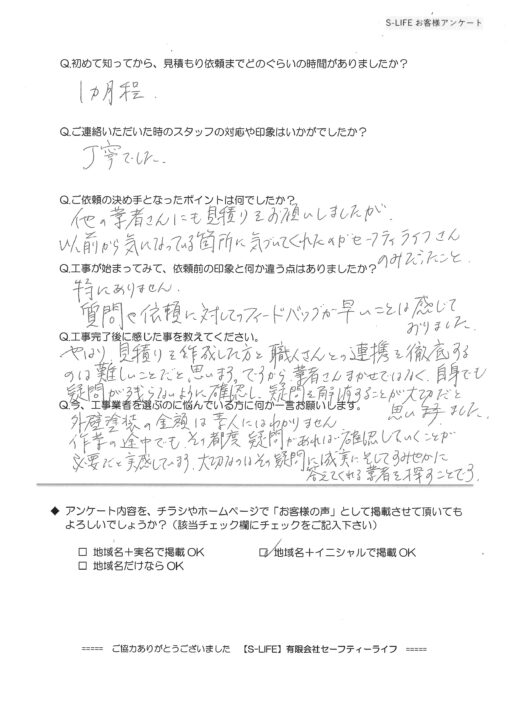 S-LIFE お客様アンケート
Q.初めて知ってから、見積もり依頼までどのぐらいの時間がありましたか？
1カ月程.
Q.ご連絡いただいた時のスタッフの対応や印象はいかがでしたか？
丁寧でした.
Q.ご依頼の決め手となったポイントは何でしたか？
他の業者さんにも見積りをお願いしましたが.
以前から気になっている箇所に気づいてくれたのがセーフティライフさん
のみだったこと.
Q.工事が始まってみて、依頼前の印象と何か違う点はありましたか？
特にありません.
質問や依頼に対してのフィードバックが早いことは感じて
おりました.
Q.工事完了後に感じた事を教えてください。
やはり、見積りを作成した方と職人さんとの連携を徹底する
のは難しいことだと思います。ですから業者さんまかせではなく、自身でも
疑問が残らないように確認し、疑問を解消することが大切だと
思いました.
Q.今、工事業者を選ぶのに悩んでいる方に何か一言お願いします。
外壁塗装の金額は素人にはわかりません
作業の途中でもその都度疑問があれば確認していくことが
必要だと実感しています.大切なのはその疑問に誠実にそしてすみやかに
答えてくれる業者を探すことです.
◆ アンケート内容を、チラシやホームページで「お客様の声」として掲載させて頂いても
よろしいでしょうか？（該当チェック欄にチェックをご記入下さい）
□ 地域名＋実名で掲載 OK ☑ 地域名＋イニシャルで掲載 OK
□ 地域名だけなら OK
===== ご協力ありがとうございました 【S-LIFE】有限会社セーフティーライフ =====